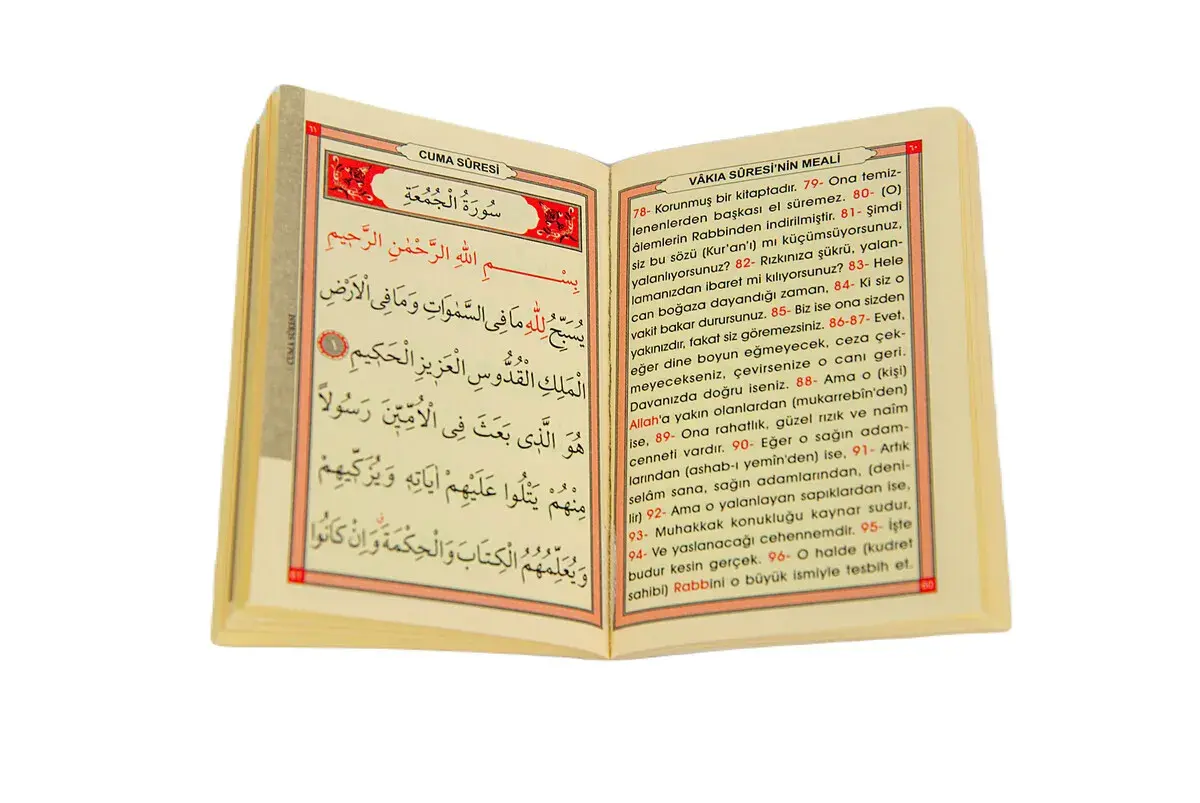 VÂKIA SÛRESİ'NİN MEALİ
٦٠
78- Korunmuş bir kitaptadır. 79- Ona temiz-
lenenlerden başkası el süremez. 80- (O)
âlemlerin Rabbinden indirilmiştir. 81- Şimdi
siz bu sözü (Kur'an'ı) mı küçümsüyorsunuz,
yalanlıyorsunuz? 82- Rızkınıza şükrü, yalan-
lamanızdan ibaret mi kılıyorsunuz? 83- Hele
can boğaza dayandığı zaman, 84- Ki siz o
vakit bakar durursunuz. 85- Biz ise ona sizden
yakınızdır, fakat siz göremezsiniz. 86-87- Evet,
eğer dine boyun eğmeyecek, ceza çek-
meyecekseniz, çevirsenize o canı geri.
Davanızda doğru iseniz. 88- Ama o (kişi)
Allah'a yakın olanlardan (mukarrebîn'den)
ise, 89- Ona rahatlık, güzel rızık ve naîm
cenneti vardır. 90- Eğer o sağın adam-
larından (ashab-ı yemîn'den) ise, 91- Artık
selâm sana, sağın adamlarından, (deni-
lir) 92- Ama o yalanlayan sapıklardan ise,
93- Muhakkak konukluğu kaynar sudur,
94- Ve yaslanacağı cehennemdir. 95- İşte
budur kesin gerçek. 96- O halde (kudret
sahibi) Rabbini o büyük ismiyle tesbih et.
60
٦١
CUMA SÛRESİ
سُورَةُ الْجُمُعَةِ
بِسْمِ اللّٰهِ الرَّحْمٰنِ الرَّحٖيمِ
يُسَبِّحُ لِلّٰهِ مَا فِى السَّمٰوَاتِ وَمَا فِى الْاَرْضِ
الْمَلِكِ الْقُدُّوسِ الْعَزٖيزِ الْحَكٖيمِ ١
هُوَ الَّذٖى بَعَثَ فِى الْاُمِّيّٖنَ رَسُولاً
مِنْهُمْ يَتْلُوا عَلَيْهِمْ اٰيَاتِهٖ وَيُزَكّٖيهِمْ
وَيُعَلِّمُهُمُ الْكِتَابَ وَالْحِكْمَةَ وَاِنْ كَانُوا
61
CUMA SÛRESİ